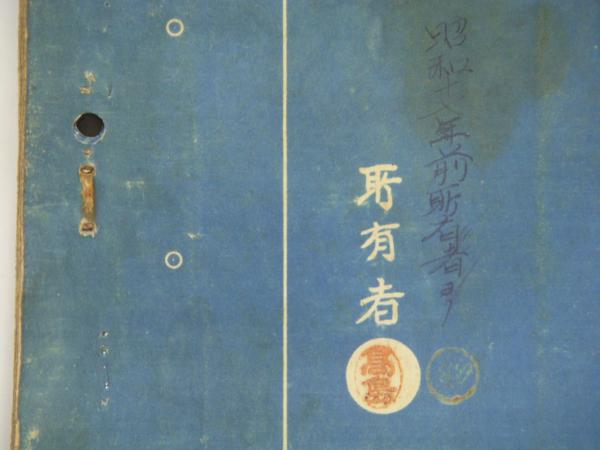 昭和十八年前所有者ヨリ
所有者
高島